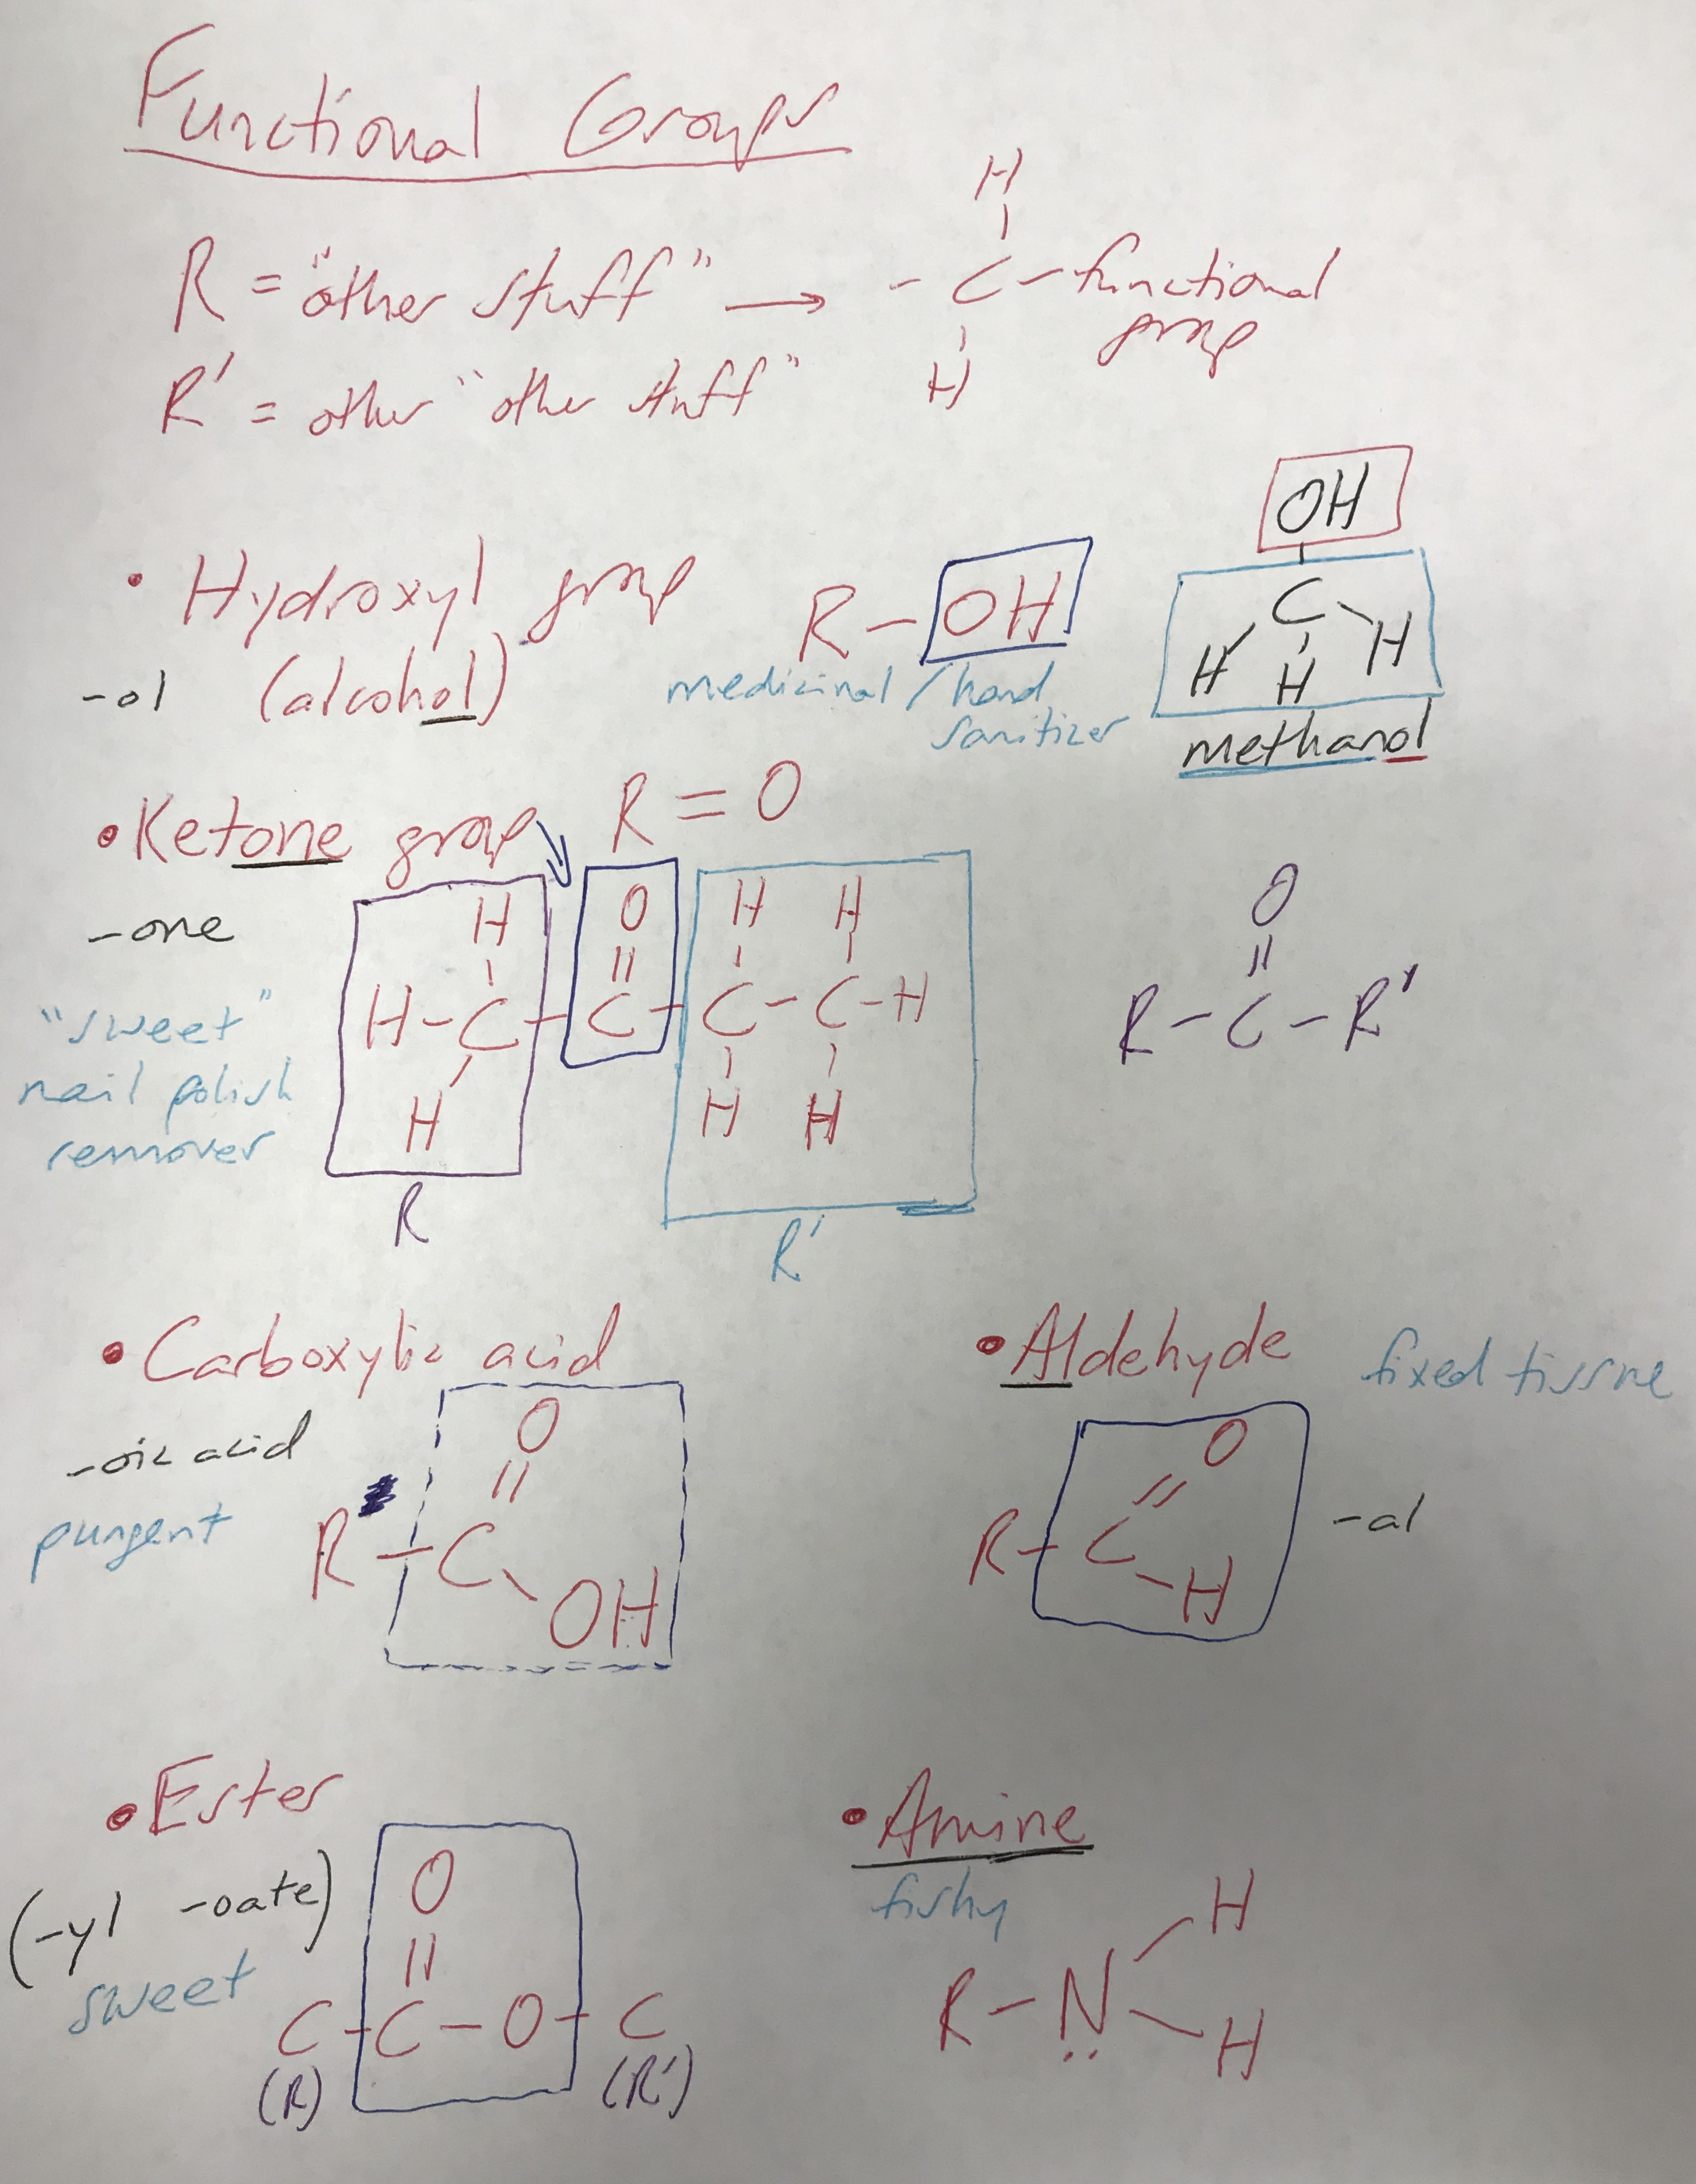 Functional Groups
R = "other stuff" → - C - functional group
H
H
R' = other "other stuff"
• Hydroxyl group
-ol (alcohol)
R - OH
medicinal / hand
sanitizer
OH
C
H H H
methanol
• Ketone group
R = O
-one
"sweet"
nail polish
remover
H O H H
H - C - C - C - C - H
H H H
R
R'
O
R - C - R'
• Carboxylic acid
-oic acid
pungent
O
R - C
OH
• Aldehyde
fixed tissue
O
R - C
H
-al
• Ester
(-yl -oate)
sweet
O
C - C - O - C
(R) (R')
• Amine
fishy
H
R - N
H